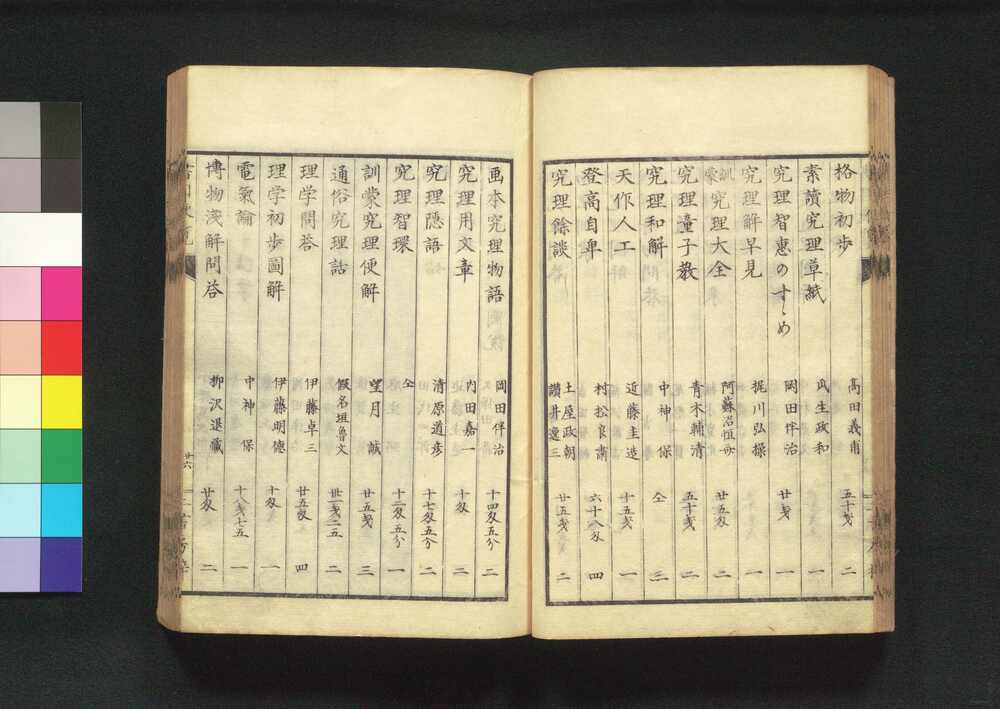 格物初歩 高田義甫 五十戔 二
素讀究理草紙 政和 一
究理智惠のすゝめ 岡田伴治 廿戔 一
究理解早見 梶川弘操 一
訓蒙究理大全 阿蘇沼恒 廿五匁 二
究理童子教 青木輔清 五十戔 二
究理和解 中神保 仝 三
天作人工 近藤圭造 十五戔 一
登高自卑 村松良肅 六十八匁 四
究理餘談 土屋政朝 讃井逸三 廿五戔 二
画本究理物語 岡田伴治 十四匁五分 二
究理用文章 内田嘉一 十匁 一
究理隠語 清原道彦 十七匁五分 二
究理智環 仝 十二匁五分 一
訓蒙究理便解 望月誠 廿五戔 三
通俗究理話 假名垣魯文 卅一戔二五 二
理学問答 伊藤卓三 廿五匁 四
理学初歩圖解 伊藤明德 十匁 一
電氣論 中神保 十八戔七五 一
博物淺解問答 柳沢退藏 廿匁 二
廿六